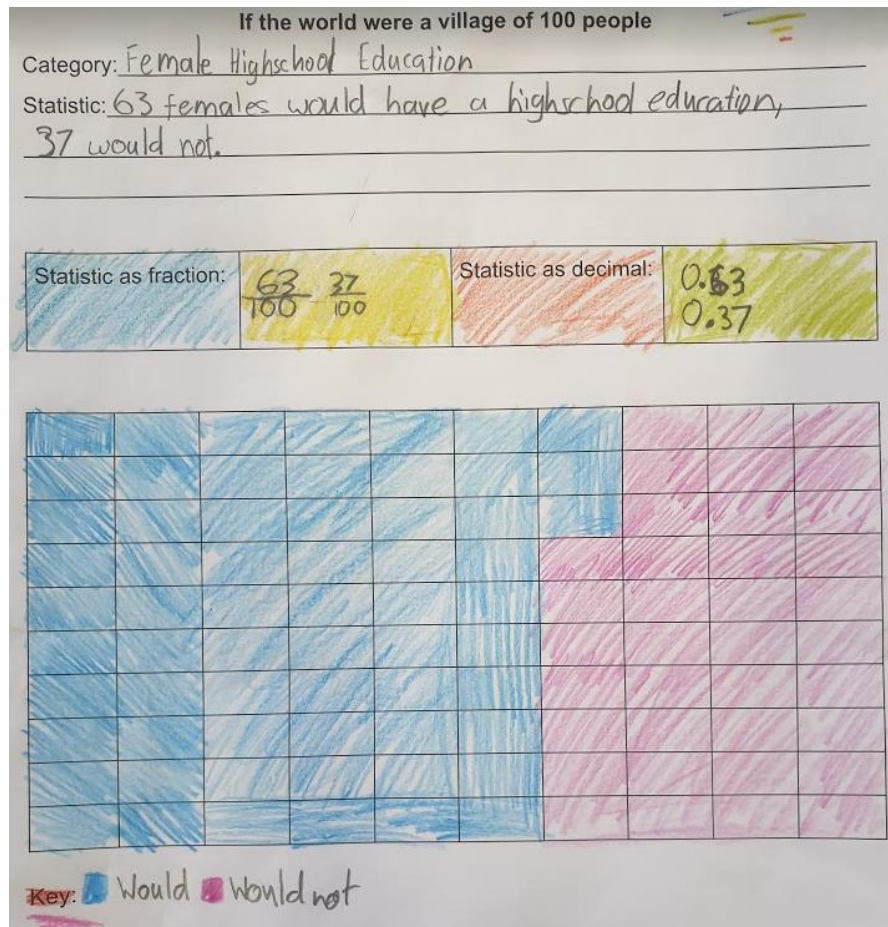 If the world were a village of 100 people
Category: Female Highschool Education
Statistic: 63 females would have a highschool education,
37 would not.
Statistic as fraction: 63/100 37/100 Statistic as decimal: 0.63
0.37
Key: Would Would not